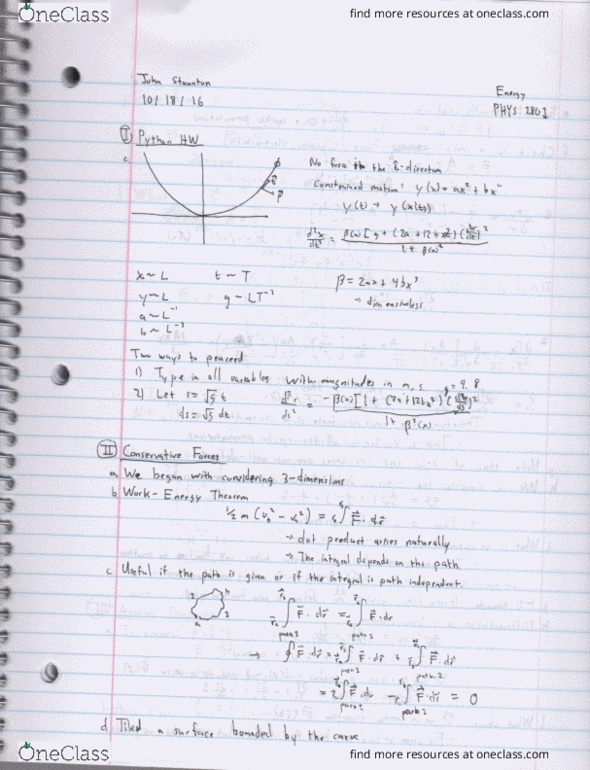 OneClass
find more resources at oneclass.com
John Staunton
10/18/16
Energy
PHYS 2801
I Python HW
a.
No force in the z-direction
Constrained motion: y(x) = ax² + bx⁴
y(t) → y(x(t))
d²x/dt² = β(x)[g + (2a + 12bx²)(dx/dt)²] / 1 + β(x)²
x ~ L
t ~ T
β = 2ax + 4bx³
y ~ L
g ~ LT⁻²
~ dimensionless
a ~ L⁻¹
b ~ L⁻³
Two ways to proceed
1) Type in all variables with magnitudes in m, s g = 9.8
2) Let s = √g t
ds = √g dt
II Conservative Forces
a. We began with considering 3-dimensions
b. Work-Energy Theorem
→ dot product arises naturally
→ The integral depends on the path
c. Useful if the path is given or if the integral is path independent.
path 1 path 2
→ ∮ F⃗ · dr⃗ =
path 1 path 2
= 0
path 2 path 2
d. Tiled a surface bounded by the curve
OneClass
find more resources at oneclass.com